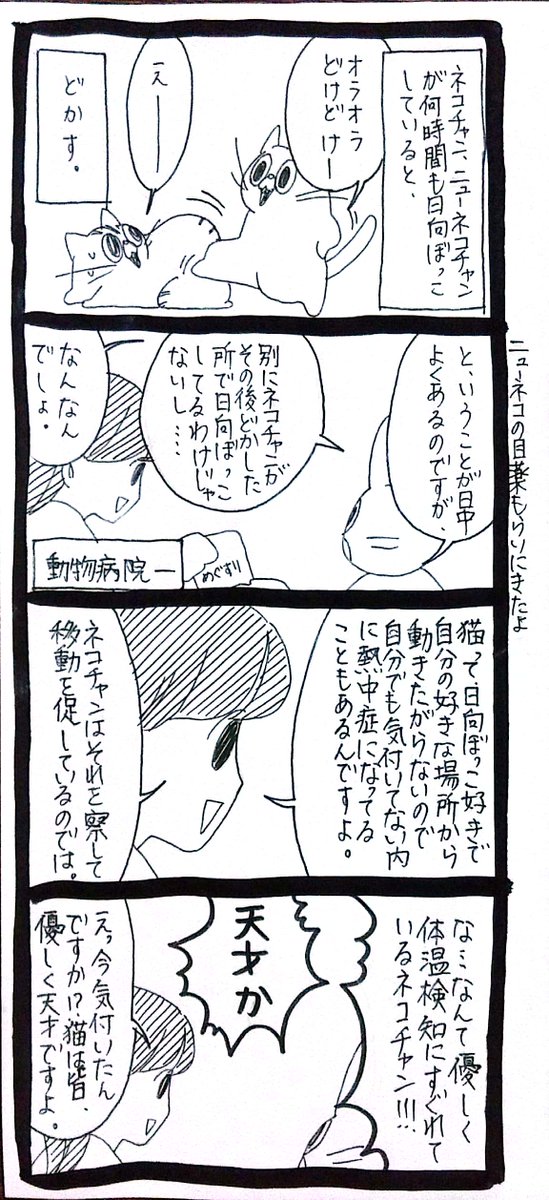 ネコチャン、ニューネコチャン
が何時間も日向ぼっこ
していると、
オラオラ
どけどけー
えー
どかす。
ニューネコの目薬もらいにきたよ
ということが日中
よくあるのですが、
別にネコチャンが
その後どかした
所で日向ぼっこ
してるわけじゃ
ないし……
なんなん
でしょ。
めぐすり
動物病院
猫って、日向ぼっこ好きで
自分の好きな場所から
動きたがらないので
自分でも気付いてない内
に熱中症になってる
こともあるんですよ。
ネコチャンはそれを察して
移動を促しているのでは。
な…なんて優しく
体温検知にすぐれて
いるネコチャン!!!
天才か
えっ今気付いたん
ですか!?猫は皆、
優しく天才ですよ。